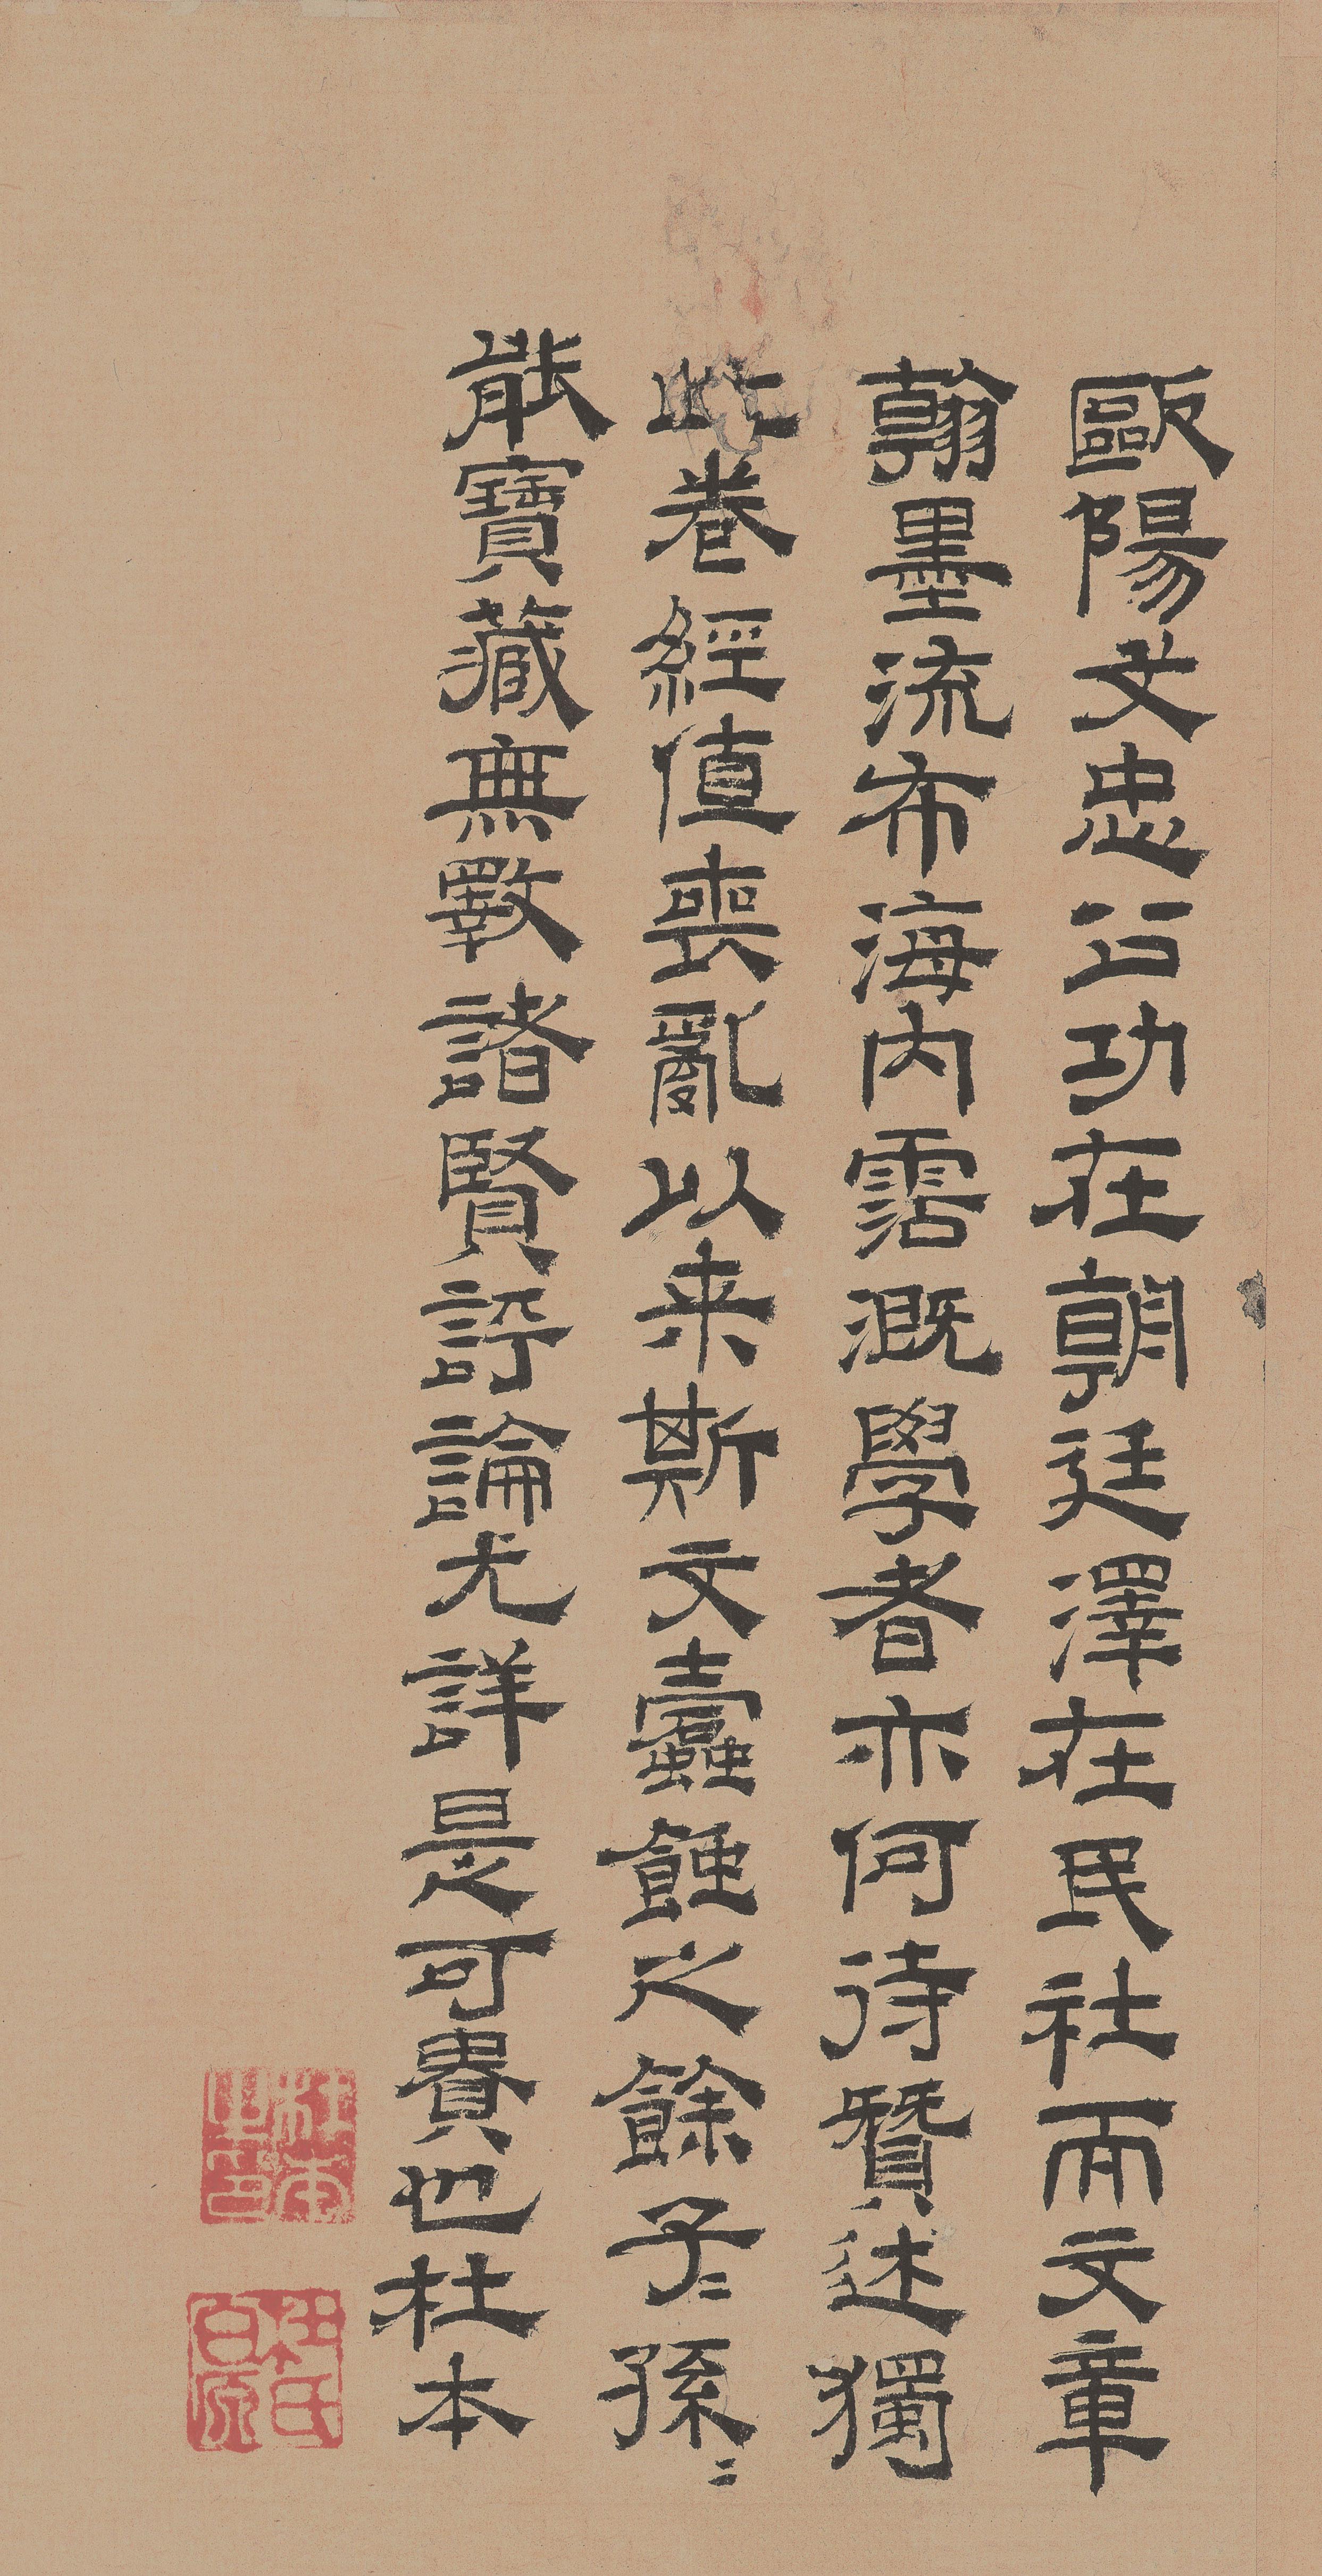 歐陽文忠公功在朝廷澤在民社而文章
翰墨流布海內霑溉學者亦何待贊述獨
此卷經值喪亂以来斯文蠹蝕之餘子〻孫〻
能寶藏無斁諸賢評論尤詳是可貴也杜本
杜本之印
伯原